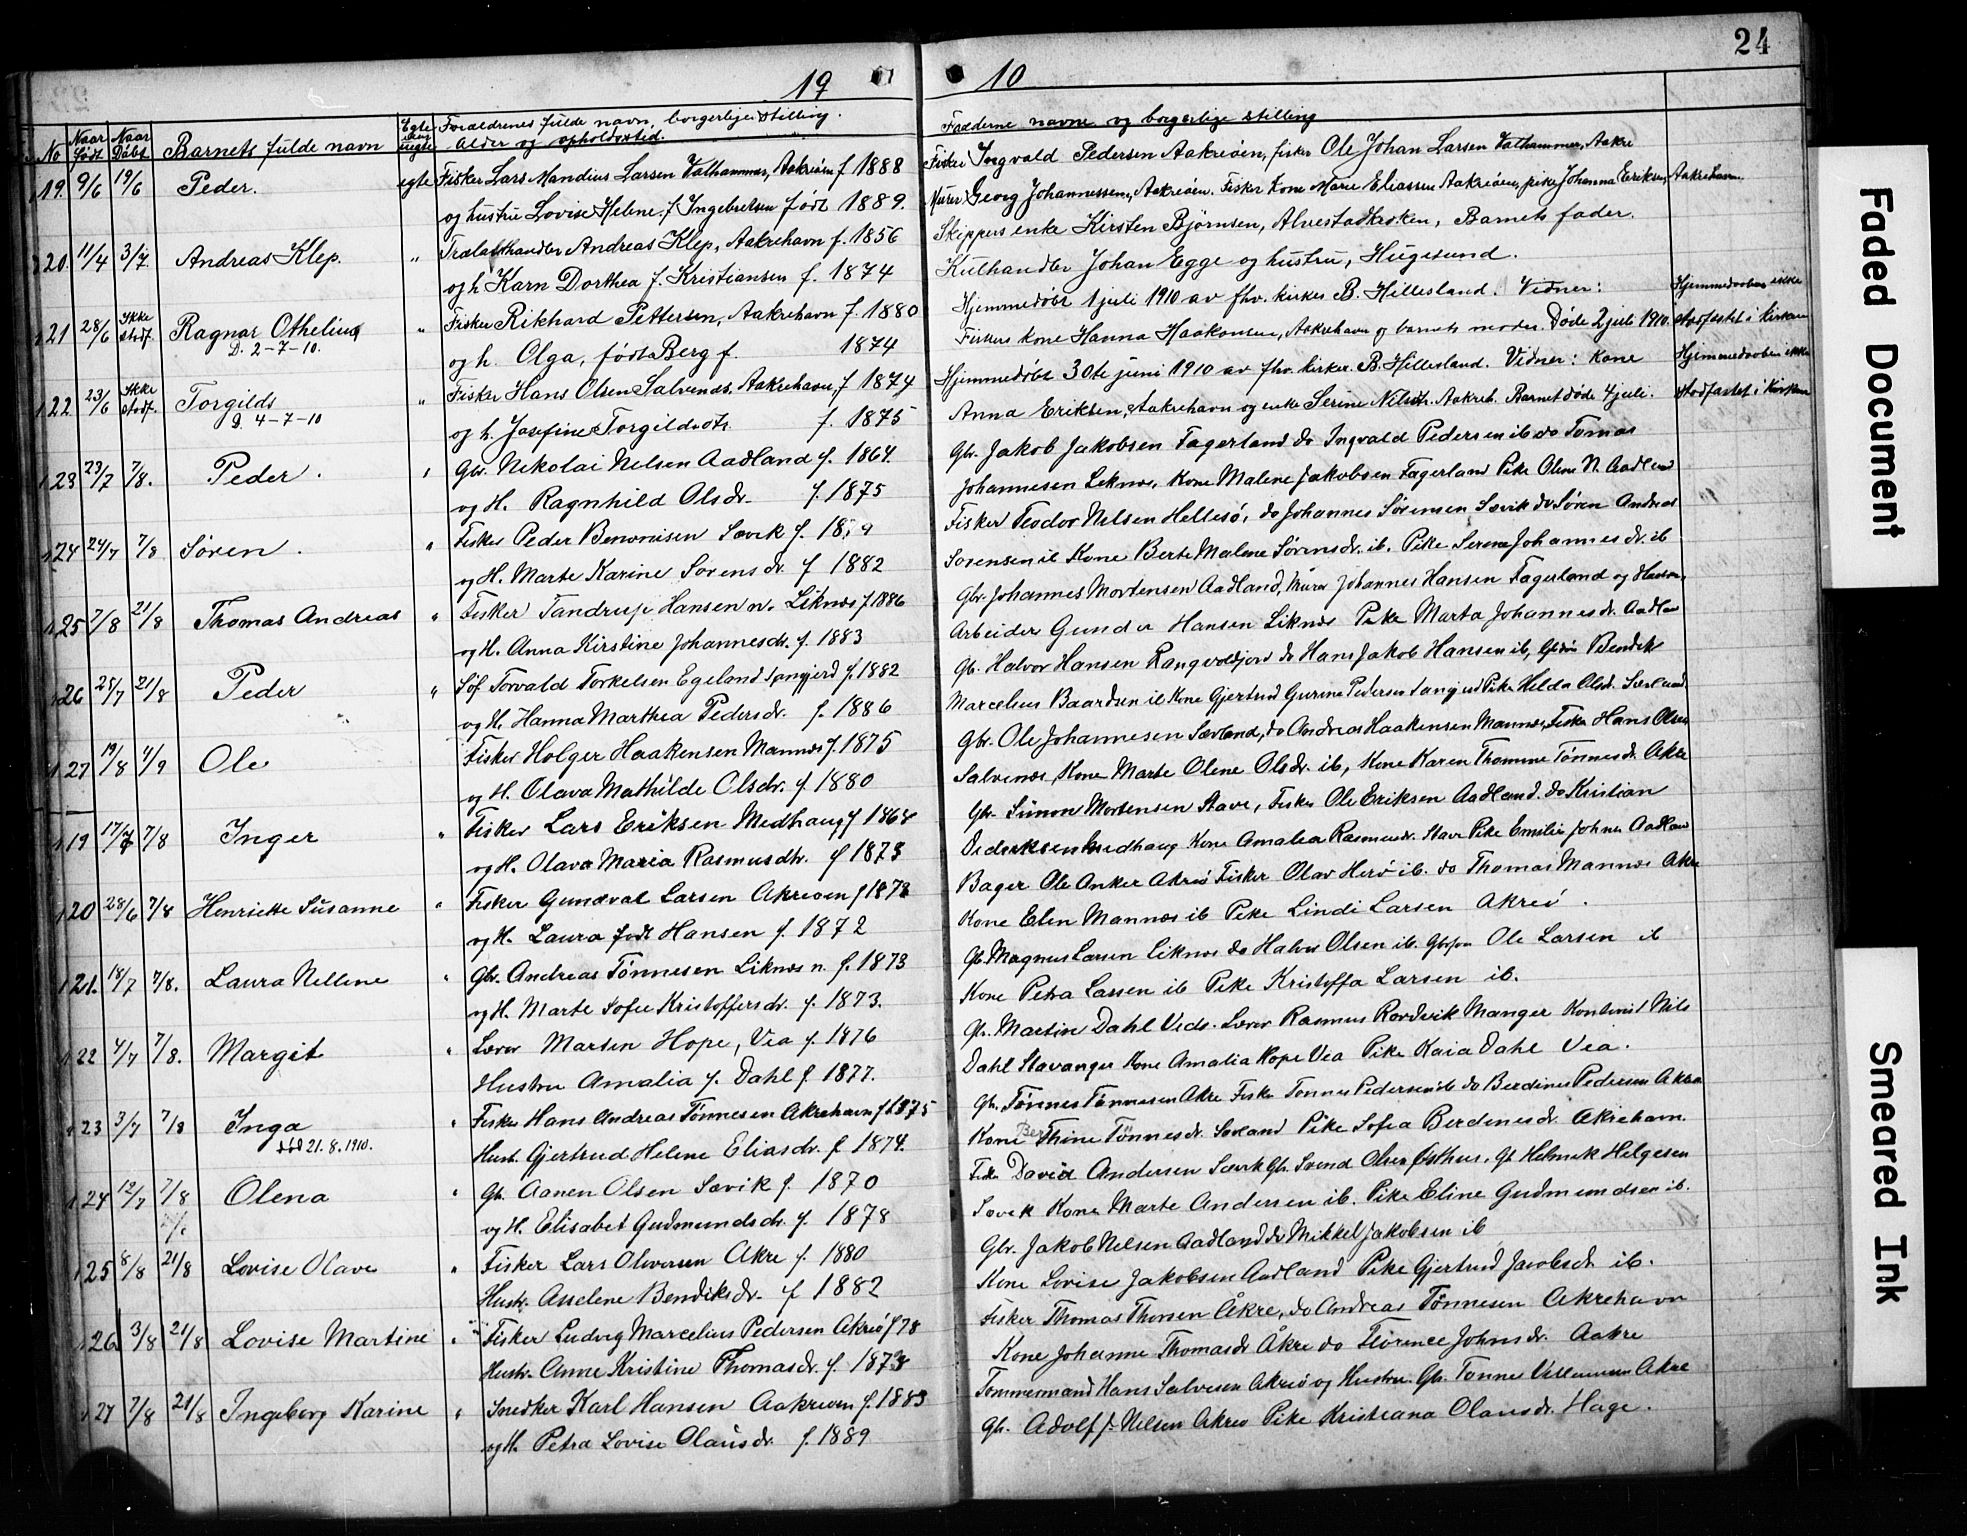 24
19
10
No
Naar Født
Naar Døbt
Barnets fulde navn
Egte eller uegte
Forældrenes fulde navn, borgerlige stilling.
alder og opholdssted.
Faddernes navne og borgerlige stilling
19. 9/6 19/6 Peder. egte Fisker Lars Mandius Larsen Valhammer, Aakreøen f 1888
og hustru Lovise Helene f. Ingebretsen født 1889.
20 11/4 3/7 Andreas Klep. " Trælasthandler Andreas Klep, Aakrehavn f. 1856
og h Karn Dorthea f. Kristiansen f. 1874
21 28/6 Ikke stadf. Ragnar Othelius " Fisker Rikhard Pettersen, Aakrehavn f. 1880
D. 2-7-10.
og h. Olga, født Berg f. 1874
22 23/6 Ikke stadf. Torgilds " Fisker Hans Olsen Salvenes, Aakrehavn, f 1874
D. 4-7-10
og h. Josefine Torgildsdtr. f. 1875
23 23/7 7/8. Peder. " Gbr. Nikolai Nelsen Aadland f. 1864.
og H. Ragnhild Olsdr. f. 1875
24 24/7 7/8 Søren. " Fisker Peder Sævik f.
og H. Marte Karine Sorensdr. f 1882
25 7/8 21/8 Thomas Andreas " Fisker Tandrup Hansen n. Liknes f 1886
og H. Anna Kirstine Johannesdr. f. 1883
26 28/7 21/8 Peder " Søf Torvald Torkelsen Egeland f. 1882
og H. Hanna Marthea Pedersdr. f. 1886
27 19/8 4/9 Ole Fisker Holger Haakensen Mannes f. 1875
og H. Olava Mathilde Olsdr. f. 1880
19 17/7 7/8 Inger " Fisker Lars Eriksen Medhaug f 1868
og H. Olava Maria Rasmusdtr. f 1873
20 28/6 7/8 Henriette Susanne " Fisker Gundval Larsen Akreøen f 1873
og H. Laura født Hansen f. 1872
121. 18/7 7/8. Laura Nelline " Gbr. Andreas Tønnesen Liknes n. f. 1873
og H. Marte Sofie Kristoffersdr. f. 1873.
22 4/7 7/8. Margit " Lærer Marten Hope, Vea f. 1876
Hustru Amalia f. Dahl f. 1877.
23 3/7 7/8 Inga " Fisker Hans Andreas Tønnesen Akrehavn f 1875
død 21.8.1910.
Hust. Gjertrud Helene Eliasdr. f 1874.
24 12/7 7/8 Olena " Gb. Aanen Olsen Sævik f. 1870
og H. Elisabet Gudmundsdr. f. 1878
25 8/8 21/8 Lovise Olave " Fisker Lars Oliversen Akre f. 1880
Hustr. Anelene Bendiksdr. f 1882
26 3/8 21/8 Lovise Martine " Fisker Ludvig Marcelius Pedersen Akreø f 78
Hustr. Anne Kristine Thomasdr. f. 1873
27 7/8 21/8 Ingeborg Karine " Snedker Karl Hansen Aakreøen f. 1883
og H. Petra Lovise Olausdr. f. 1889
Fisker Ingvald Pedersen Aakreøen, fisker Ole Johan Larsen Valhammer, Aakre
Murer Georg Johannessen, Aakreøen. Fisker Kone Marie Eliassen Aakreøen, pike Johanna Eriksen, Aakrehavn.
Skippers enke Kirsten Bjørnsen, Alvestadkroken, Barnets fader.
Kulhandler Johan Egge og hustru, Hugesund.
Hjemmedøbt 1 juli 1910 av fhv. kirkes. B. Hillesland. Vidner: Hjemmedaaben ikke
Fiskers kone Hanna Haakonsen, Aakrehavn og barnets moder. Døde 2 juli 1910. stadfæstet i kirken
Hjemmedøbt 30te juni 1910 av fhv. kirkes. B. Hillesland. Vidner: Kone Hjemmedaaben ikke
Anna Eriksen, Aakrehavn og enke Serine Nilsdtr. Aakreh. Barnet døde 4 juli. stadfæstet i kirken
Gbr. Jakob Jakobsen Fagerland do Ingvald Pedersen ib do Tomas
Johannesen Leknes, Kone Malene Jakobsen Fagerland Pike Olene N. Aadland
Fisker Teodor Nelsen Hellesø, do Johannes Sørensen Sævik do Søren Andreas
Sorensen il Kone Berte Malene Sørensdr. ib. Pike Serene Johannesdr. ib
Gbr. Johannes Mortensen Aadland, Murer Johannes Hansen Fagerland og Havne,
Arbeider Gunder Hansen Liknes Pike Marta Johannesdr. Aadland
Gb. Halvor Hansen Rangvoldjord do Hans Jakob Hansen ib, Bendik
Marcelius Baardsen il Kone Gjertrud Gurine Pedersen Pike Hilda Olsdr. Sævland.
Gbr. Ole Johannesen Sævland, do Andreas Haakensen Mannes, Fisker Hans Olsen
Salvenes, Kone Marte Olene Olsdr. ib, Kone Karen Thomine Tønnesdr. Akre
Gbr. Simon Mortensen Stave, Fisker Ole Eriksen Aadland. do Kristian
Dideriksen Medhaug Kone Amalia Rasmusdr. Stave Pike Emilie Johns Aadland
Bager Ole Anker Akreø Fisker Olav Herø ib. do Thomas Mannes Akre
Kone Elen Mannes ib Pike Lindi Larsen Akreø.
Gb. Magnus Larsen Liknes do Halvor Olsen ib. Gbrsøn Ole Larsen il
Kone Petra Larsen ib Pike Kristoffa Larsen ib.
Gb. Martin Dahl Veds. Lærer Rasmus Rordvik Manger Kontorist Nils
Dahl Stavanger Kone Amalia Hope Vea Pike Kaia Dahl Vea.
Gb. Tønnes Tønnesen Akre Fisker Tonnes Pedersen ib do Berdines Pedersen Akreh
Kone Ber Thine Tönnesdr. Sævland Pike Sofia Berdinesdr. Akrehavn.
Fisker David Andersen Sævik Gb. Svend Olsen Østhus, Gb Helmik Helgesen
Sævik Kone Marte Andersen ib. Pike Eline Gudmundsen ib.
Gbr. Jakob Nelsen Aadland do Mikkel Jakobsen ib
Kone Lovise Jakobsen Aadland Pike Gjertrud Jacobsdr ib.
Fisker Thomas Thorsen Åkre, do Andreas Tønnesen Akrehavn
Kone Johanne Thomasdr Åkre do Florence Johnsdr. Aakre
Tømmermand Hans Salvesen Akreø og Hustru. Gb. Tonnes Villumsen Akre
Gb. Adolf J. Nelsen Akreø Pike Kristiana Olausdr. Hage.
Faded Document
Smeared Ink